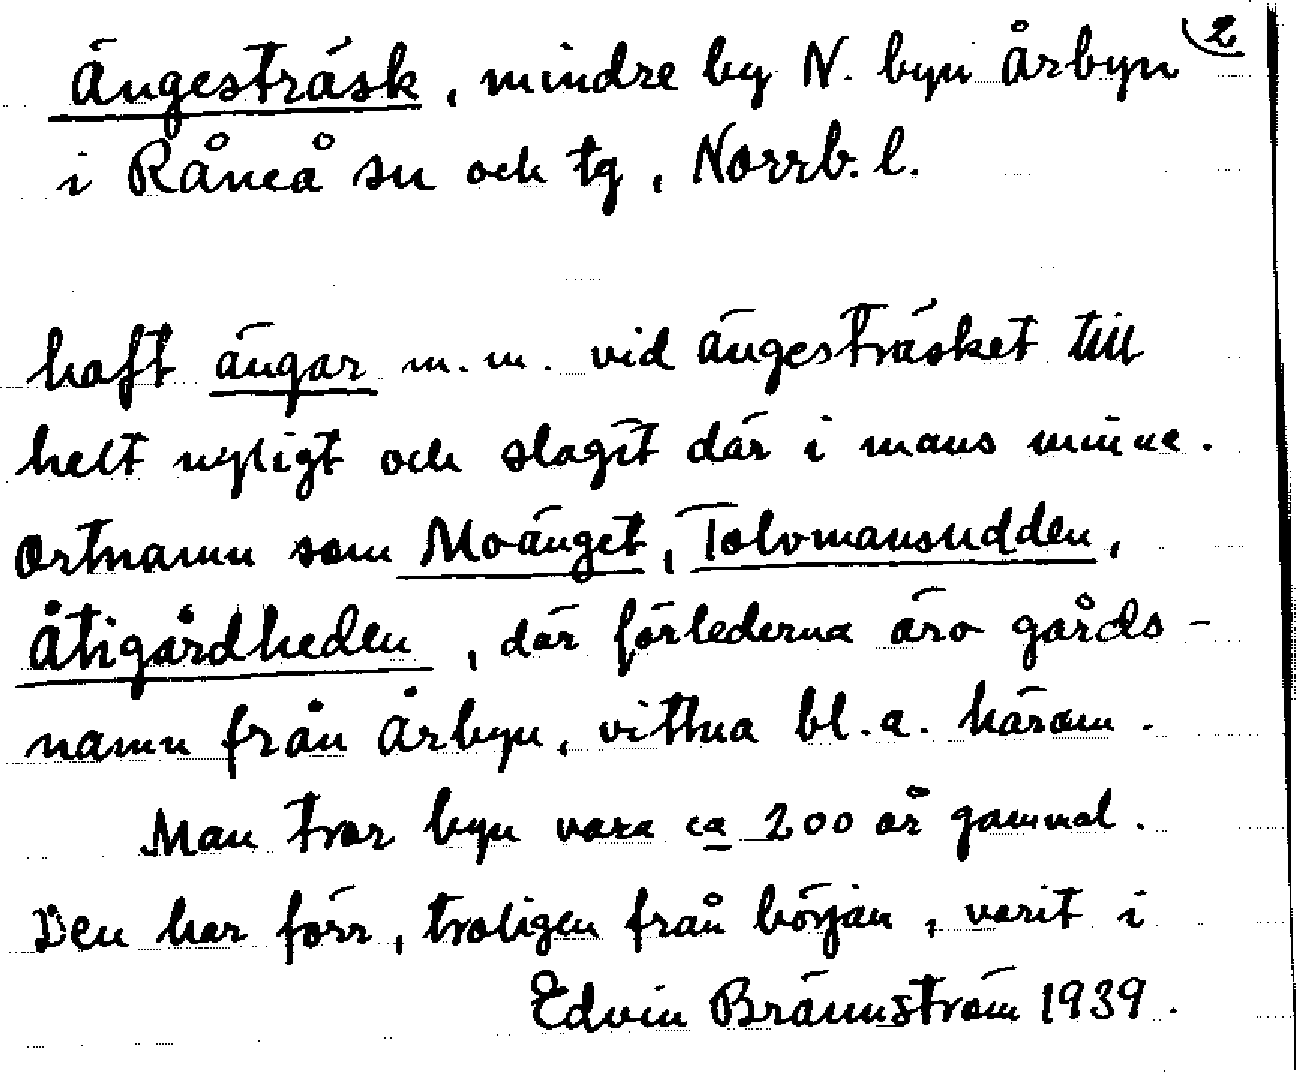 Ängesträsk, mindre by N. byn Årbyn 2
i Råneå sn och tg, Norrb. l.
haft ängar m.m. vid Ängesträsket till
helt nyligt och slagit där i mans minne.
Ortnamn som Moänget, Tolvmansudden,
Åtigårdheden, där förlederna äro gårds-
namn från Årbyn, vittna bl.a. härom.
Man tror byn vara ca 200 år gammal.
Den har förr, troligen från början, varit i
Edvin Brännström 1939.